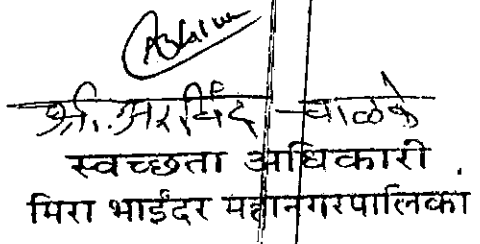 श्री. अरविंद चाळके
स्वच्छता अधिकारी.
मिरा भाईंदर महानगरपालिका